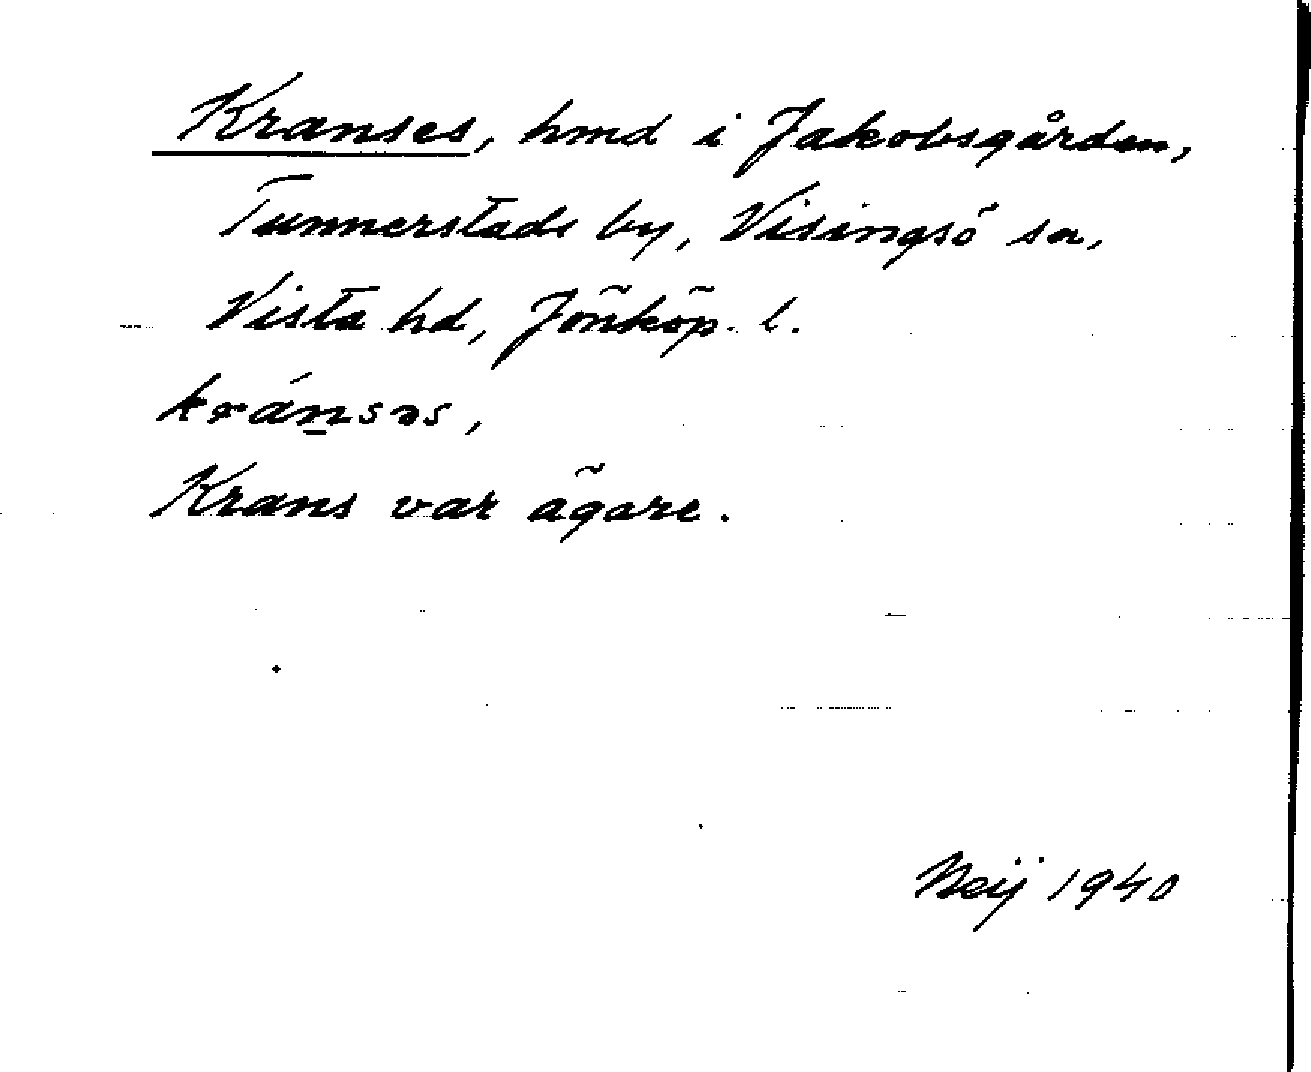 Kranses, hmd i Jakobsgården,
Tunnerstads by, Visingsö sn,
Vista hd, Jönköp. l.
kránsəs,
Krans var ägare.
Neij 1940